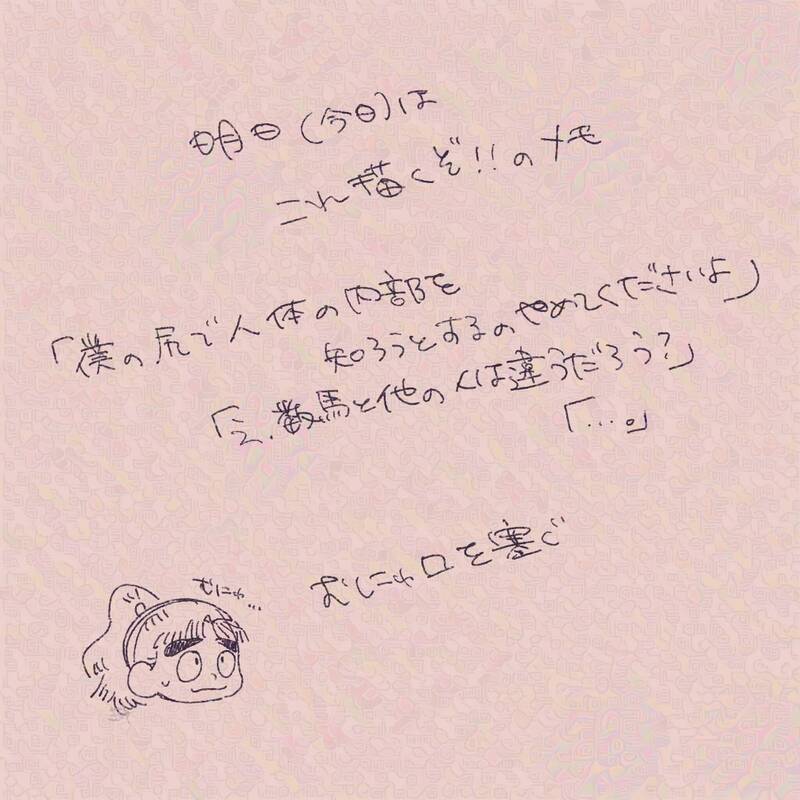 明日(今日)は
これ描くぞ!!のメモ
「僕の尻で人体の内部を
知ろうとするのやめてくださいよ」
「え、数馬と他の人は違うだろう?」
「…。」
むにゅ口を塞ぐ
むにゅ…